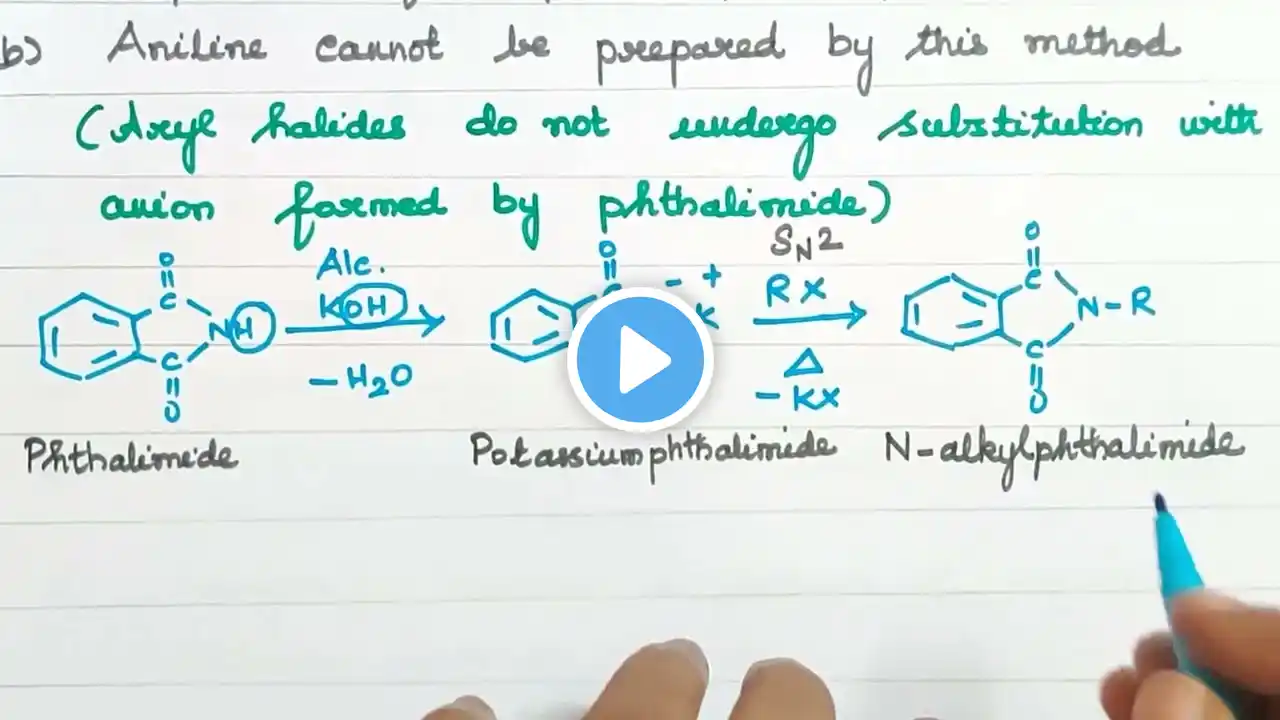 b) Aniline cannot be prepared by this method
(Aryl halides do not undergo substitution with
anion formed by phthalimide)
Alc.
KOH
-H2O
SN2
RX
Δ
-KX
O
C
NH
C
O
O
- +
K
O
C
N-R
C
O
Phthalimide
Potassiumphthalimide
N-alkylphthalimide